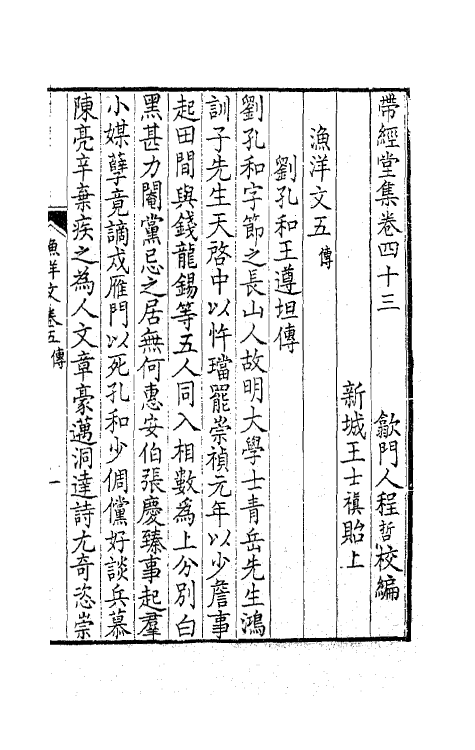 帶經堂集卷四十三
歙門人程哲校編
新城王士禛貽上
漁洋文五傳
劉孔和王遵坦傳
劉孔和字節之長山人故明大學士青岳先生鴻
訓子先生天啓中以忤璫罷崇禎元年以少詹事
起田間與錢龍錫等五人同入相數為上分別白
黑甚力閹黨忌之居無何惠安伯張慶臻事起羣
小媒孽竟謫戍雁門以死孔和少倜儻好談兵慕
陳亮辛棄疾之為人文章豪邁洞達詩尤奇恣崇
漁洋文卷五傳
一